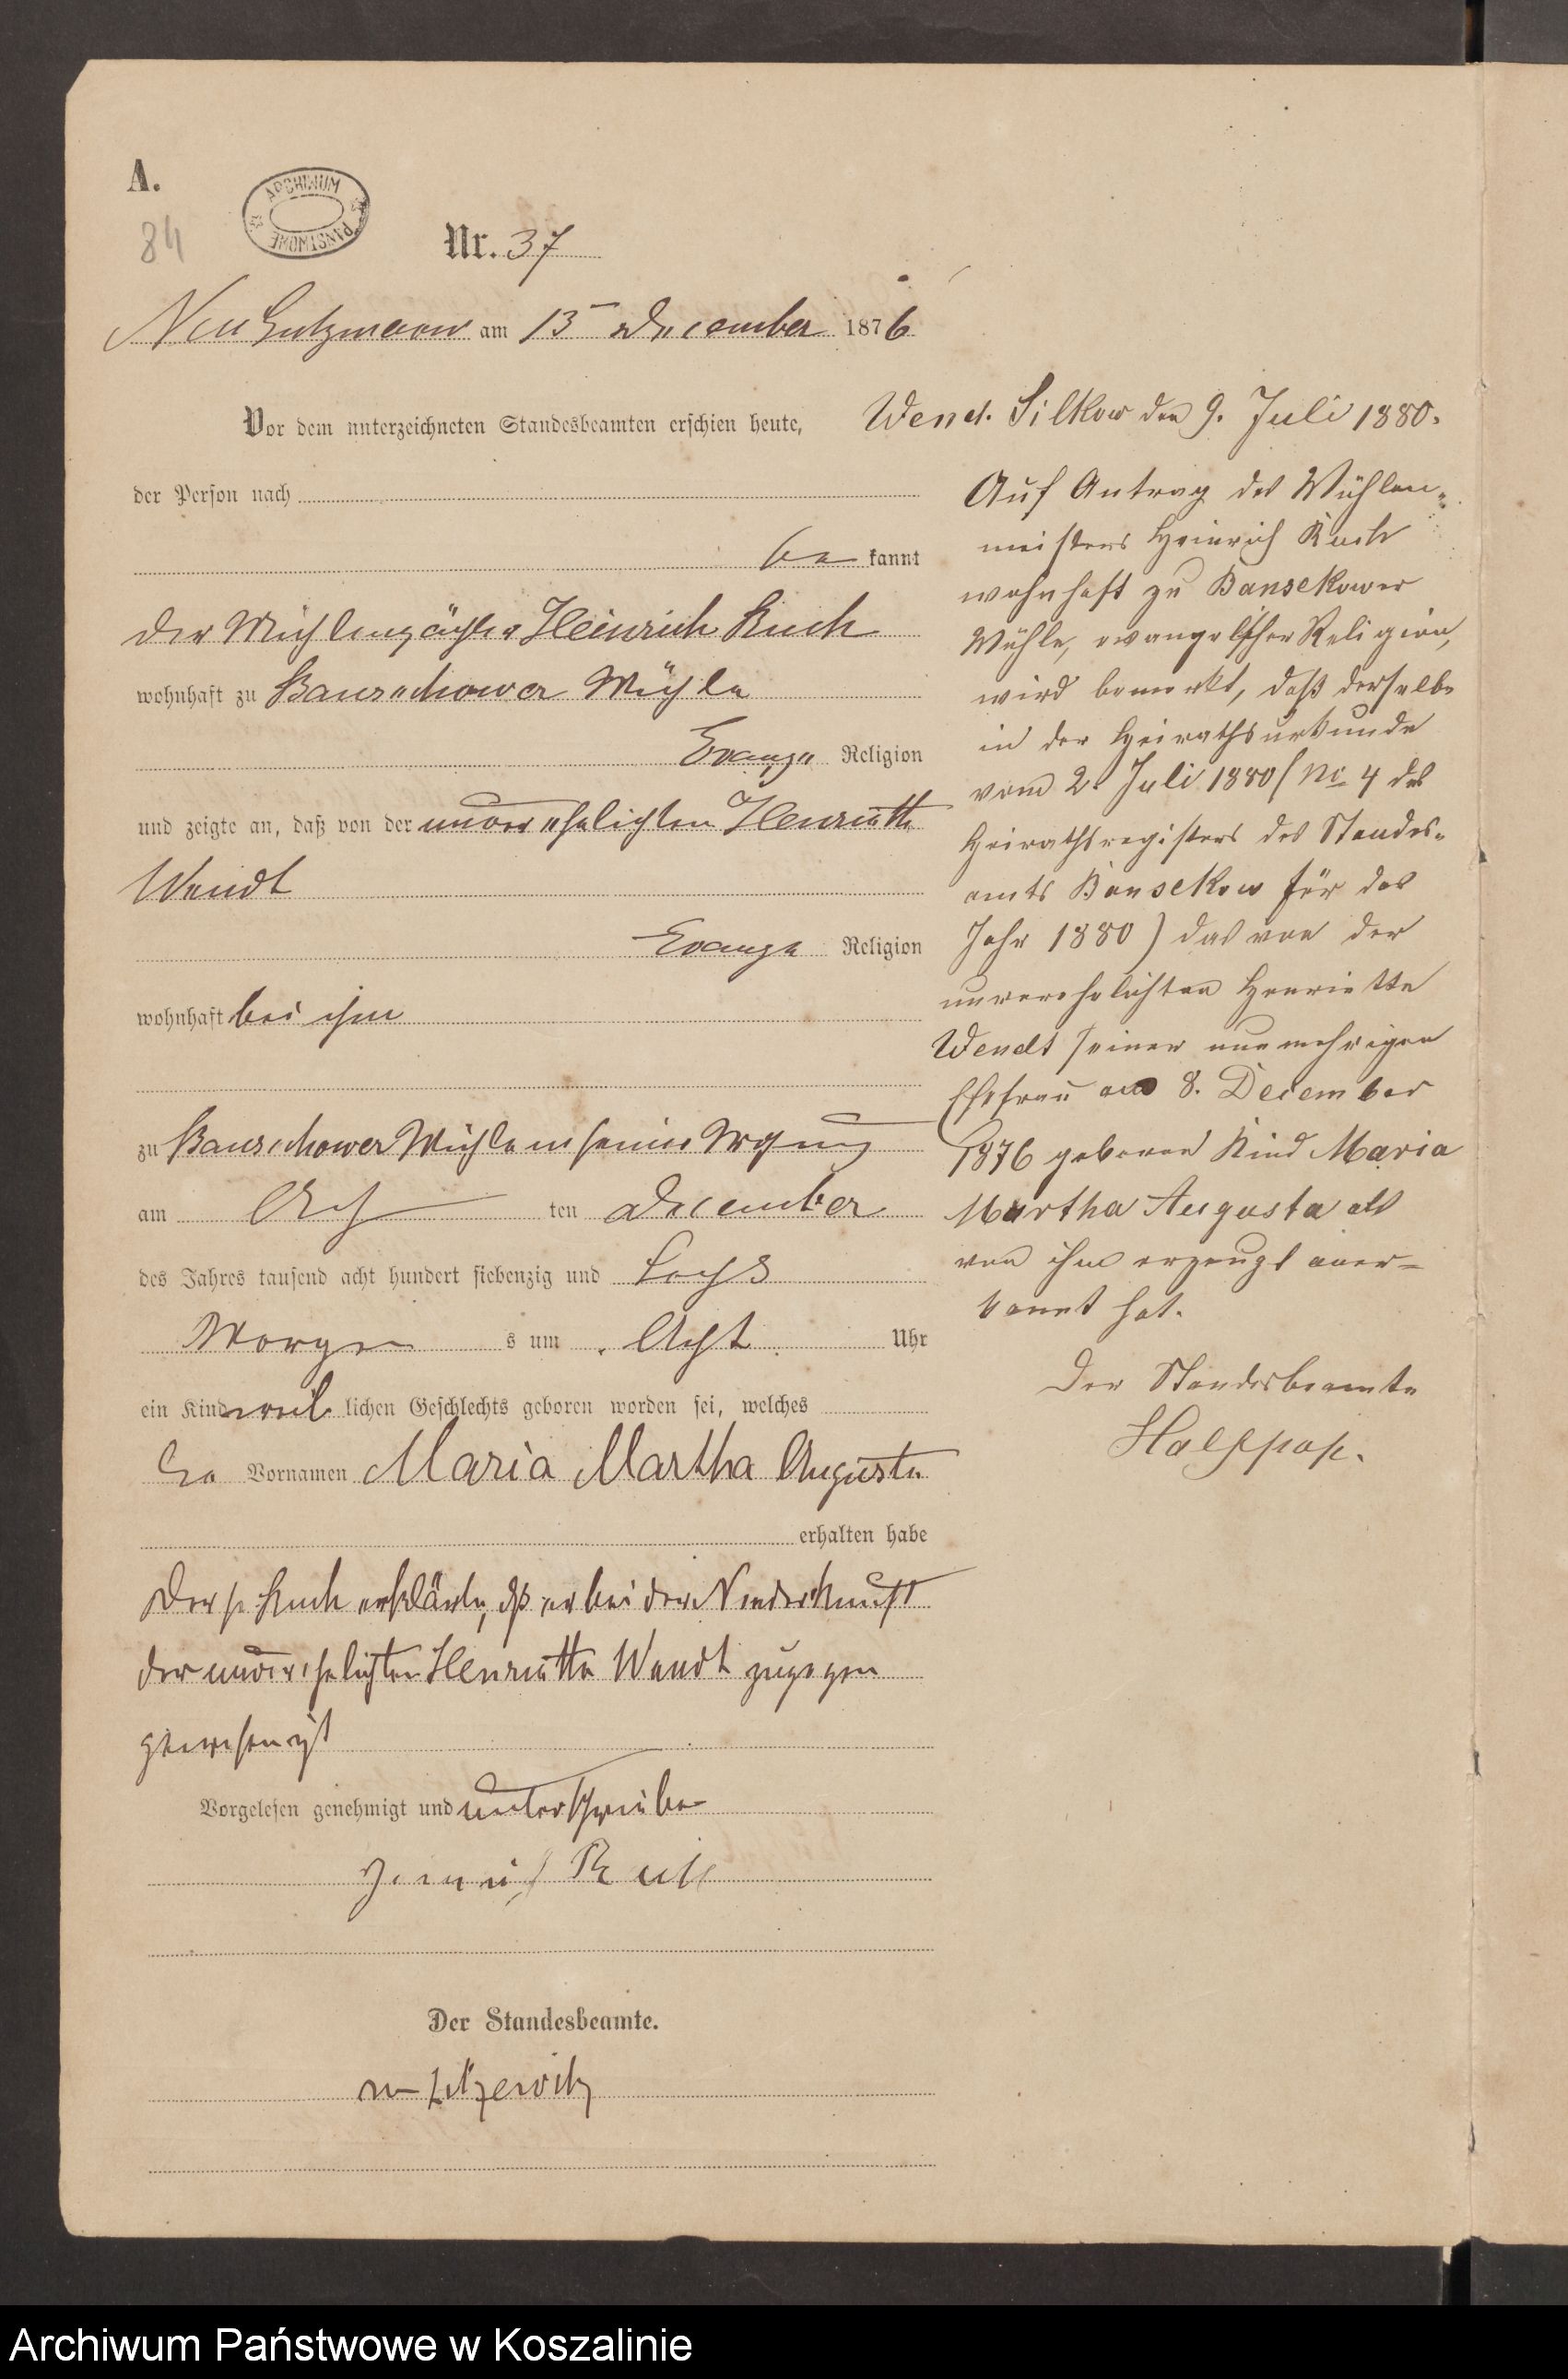 A.
ARCHIWUM PAŃSTWOWE
84
Nr. 37
Neu Gutzmerow am 13 December 1876
Vor dem unterzeichneten Standesbeamten erschien heute,
der Person nach
be kannt
der Mühlenpächter Heinrich Kuch
wohnhaft zu Bansekower Mühle
Evange Religion
und zeigte an, daß von der unverehelichten Henriette
Wendt
Evange Religion
wohnhaft bei ihm
zu Bansekower Mühle in seiner Wohnung
am Acht ten December
des Jahres tausend acht hundert siebenzig und sechs
Morgen s um Acht Uhr
ein Kind weib lichen Geschlechts geboren worden sei, welches
die Vornamen Maria Martha Auguste
erhalten habe
Der p. Kuch erklärte, dß er bei der Niederkunft
der unverehelichten Henriette Wendt zugegen
gewesen ist
Vorgelesen genehmigt und unterschrieben
Heinrich Kuch
Der Standesbeamte.
v Zitzewitz
Wend. Silkow den 9. Juli 1880.
Auf Antrag des Mühlen-
meisters Heinrich Kuch
wohnhaft zu Bansekower
Mühle, evangelischer Religion,
wird bemerkt, daß derselbe
in der Heirathsurkunde
vom 2. Juli 1880 (No 4 des
Heirathsregisters des Standes-
amts Bansekow für das
Jahr 1880) das von der
unverehelichten Henriette
Wendt seiner nunmehrigen
Ehefrau am 8. December
1876 geborene Kind Maria
Martha Augusta als
von ihm erzeugt aner-
kannt hat.
Der Standesbeamte
Archiwum Państwowe w Koszalinie